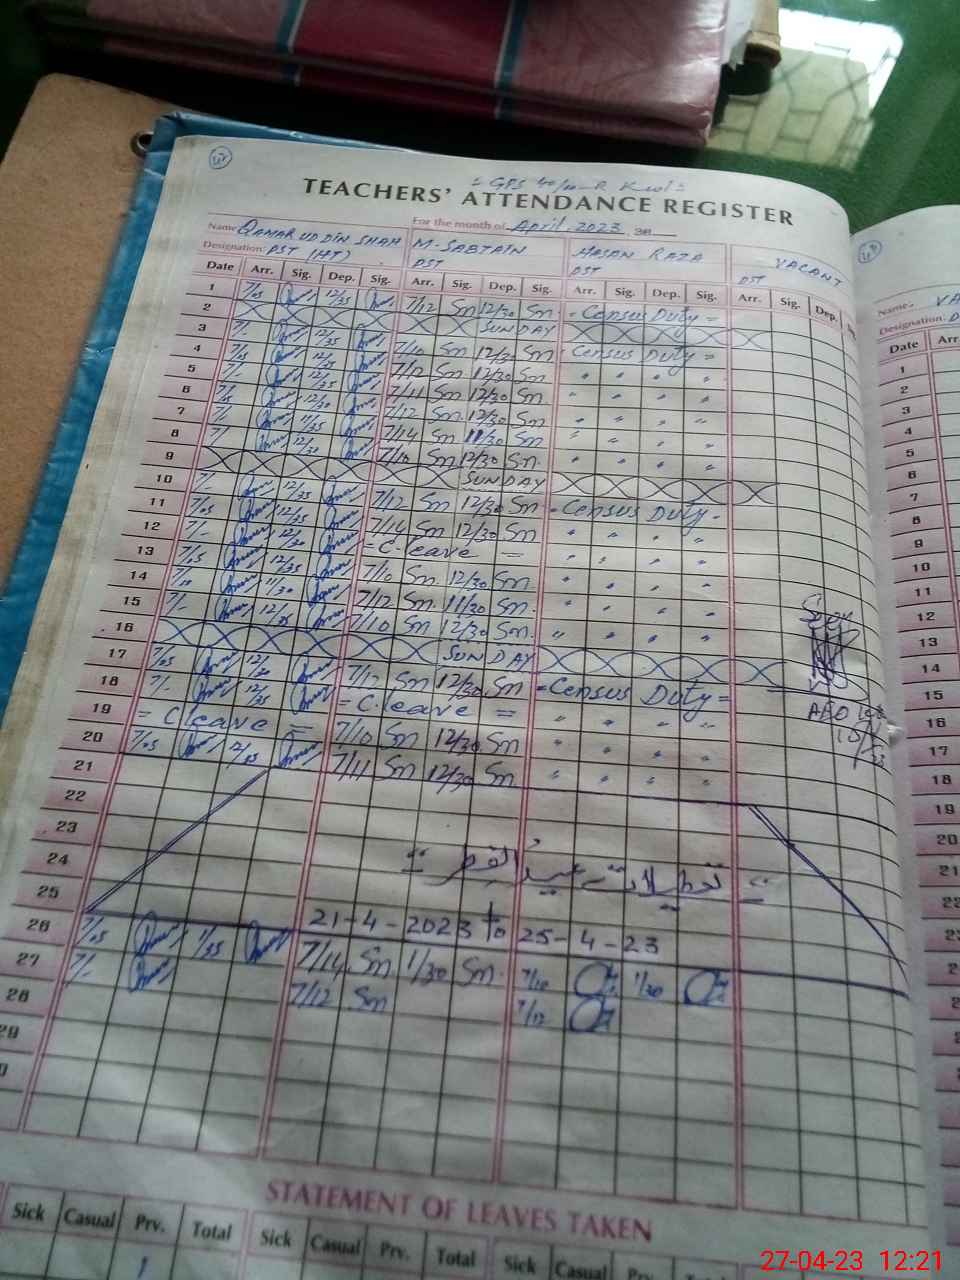 TEACHERS' ATTENDANCE REGISTER
For the month of April. 2023. 20
Name QAMAR UD DIN SHAH M. SABTAIN HASAN RAZA VACANT
Designation: PST (HT) PST PST PST
Date Arr. Sig. Dep. Sig. Arr. Sig. Dep. Sig. Arr. Sig. Dep. Sig. Arr. Sig. Dep.
1 7/05 12/35 7/12 Sm 12/30 Sm - Census Duty =
2 SUNDAY
3 7/- 12/35 7/10 Sm 12/30 Sm - Census Duty =
4 7/05 12/35 7/12 Sm 12/30 Sm " " " "
5 7/- 12/35 7/11 Sm 12/30 Sm " " " "
6 7/05 12/30 7/12 Sm 12/30 Sm " " " "
7 7/- 11/35 7/14 Sm 11/30 Sm " " " "
8 7/ 12/30 7/10 Sm 12/30 Sm. " " " "
9 SUNDAY
10 7/- 12/35 7/12 Sm 12/30 Sm - Census Duty -
11 7/05 12/35 7/14 Sm 12/30 Sm " " " "
12 7/- = C. leave = " " " "
13 7/05 12/35 7/10 Sm. 12/30 Sm. " " " "
14 11/30 7/12 Sm. 11/30 Sm. " " " "
15 7/- 7/10 Sm 12/30 Sm. " " " "
16 SUNDAY
17 7/05 7/12 Sm 12/30 Sm = Census Duty =
18 7/- 12/35 = C. leave = " " " "
19 = C leave = 7/10 Sm 12/30 Sm " " " "
20 7/05 12/35 7/11 Sm 12/30 Sm. " " " "
21
22
23
24 = تعطیلات عید الفطر =
25 21-4-2023 to 25-4-23
26 7/05 1/35 7/14 Sm 1/30 Sm. 7/10 1/30
27 7/- 7/12 Sm 7/12
28
29
AEO
STATEMENT OF LEAVES TAKEN
Sick Casual Prv. Total Sick Casual Prv. Total Sick Casual Prv. Total
Name: VA
Designation:
Date Arr
1
2
3
4
5
6
7
8
9
10
11
12
13
14
15
16
17
18
19
20
21
27-04-23 12:21